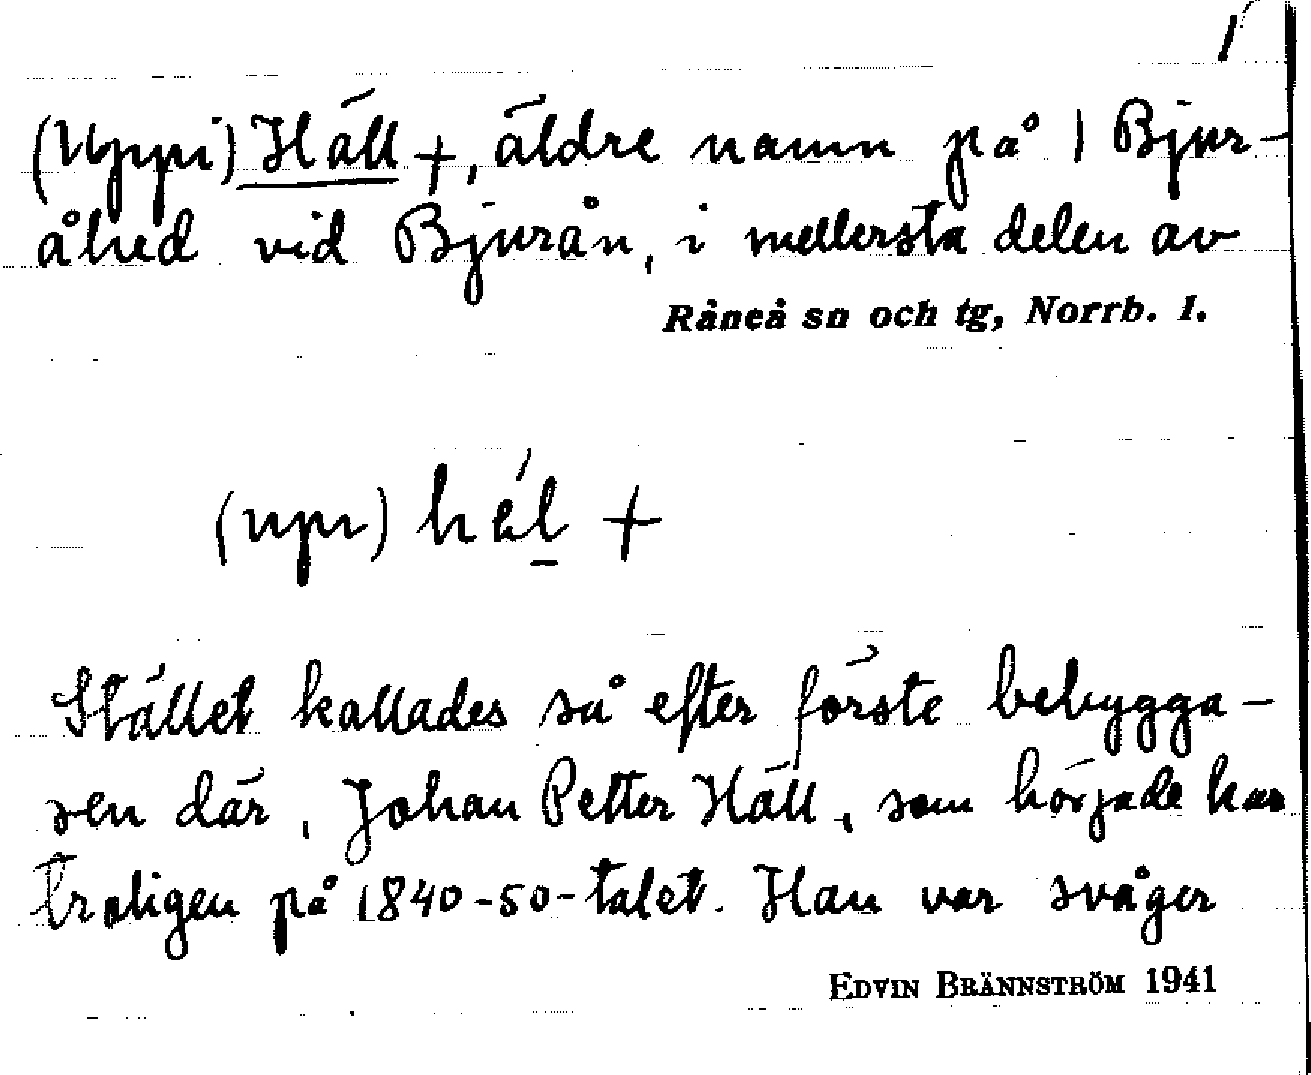 1
(Uppi) Häll +, äldre namn på 1 Bjur-
åhed vid Bjurån, i mellersta delen av
Råneå sn och tg, Norrb. l.
(upi) häl +
Stället kallades så efter förste bebygga-
ren där, Johan Petter Häll, som började här
troligen på 1840-50-talet. Han var svåger
EDVIN BRÄNNSTRÖM 1941